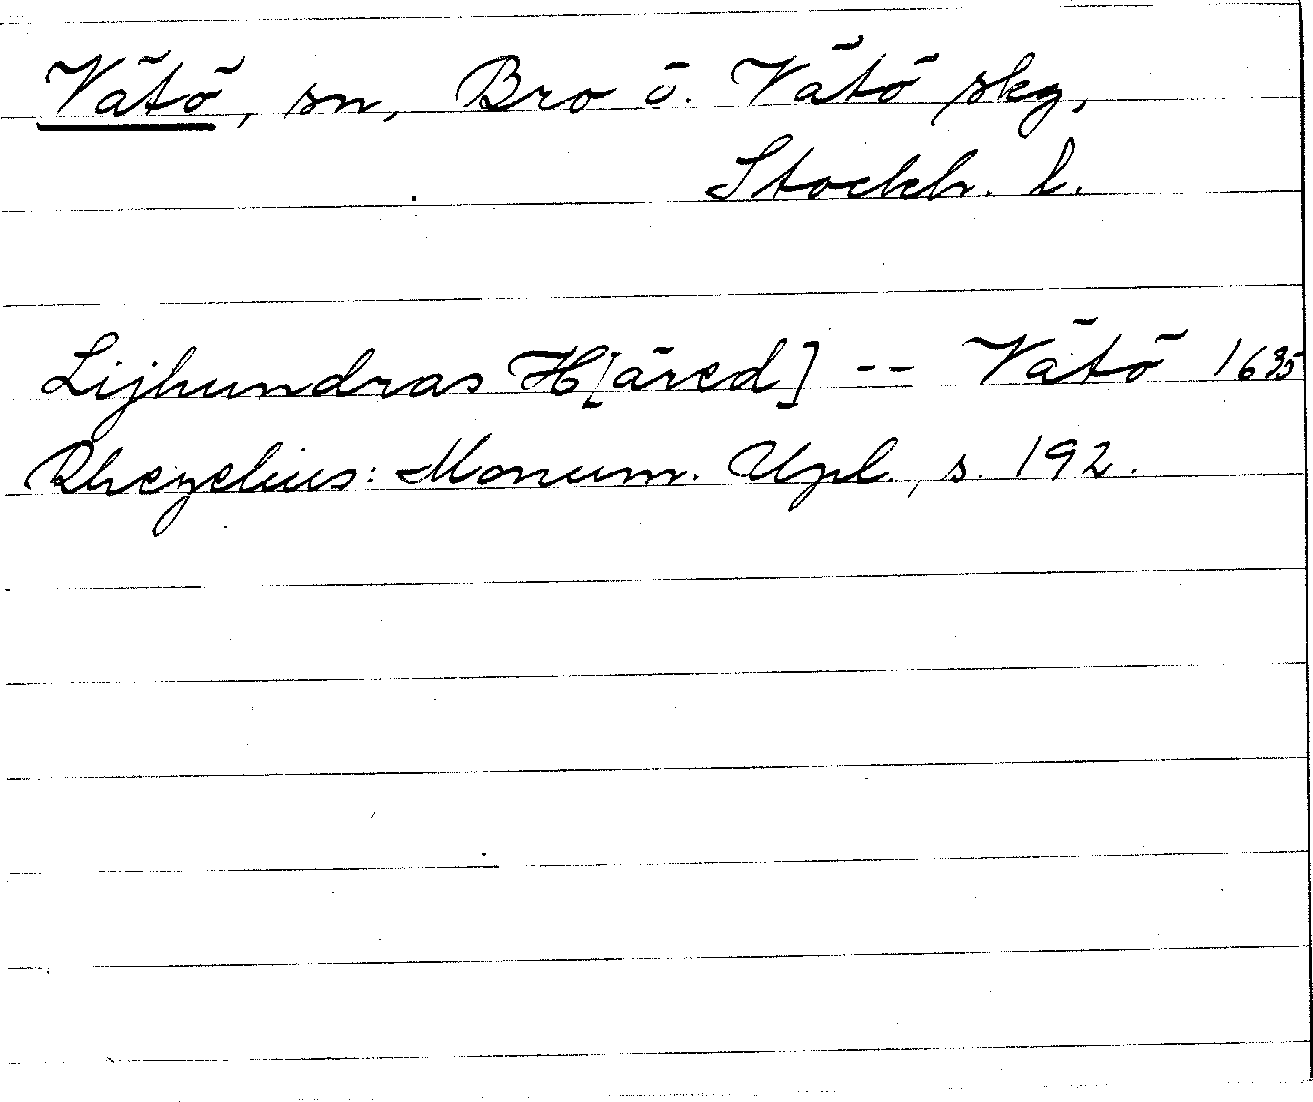 Vätö, sn, Bro ö. Vätö skg,
Stockh. l.
Lijhundras H[äred] -- Vätö 1635
Rhezelius: Monum. Upl., s. 192.